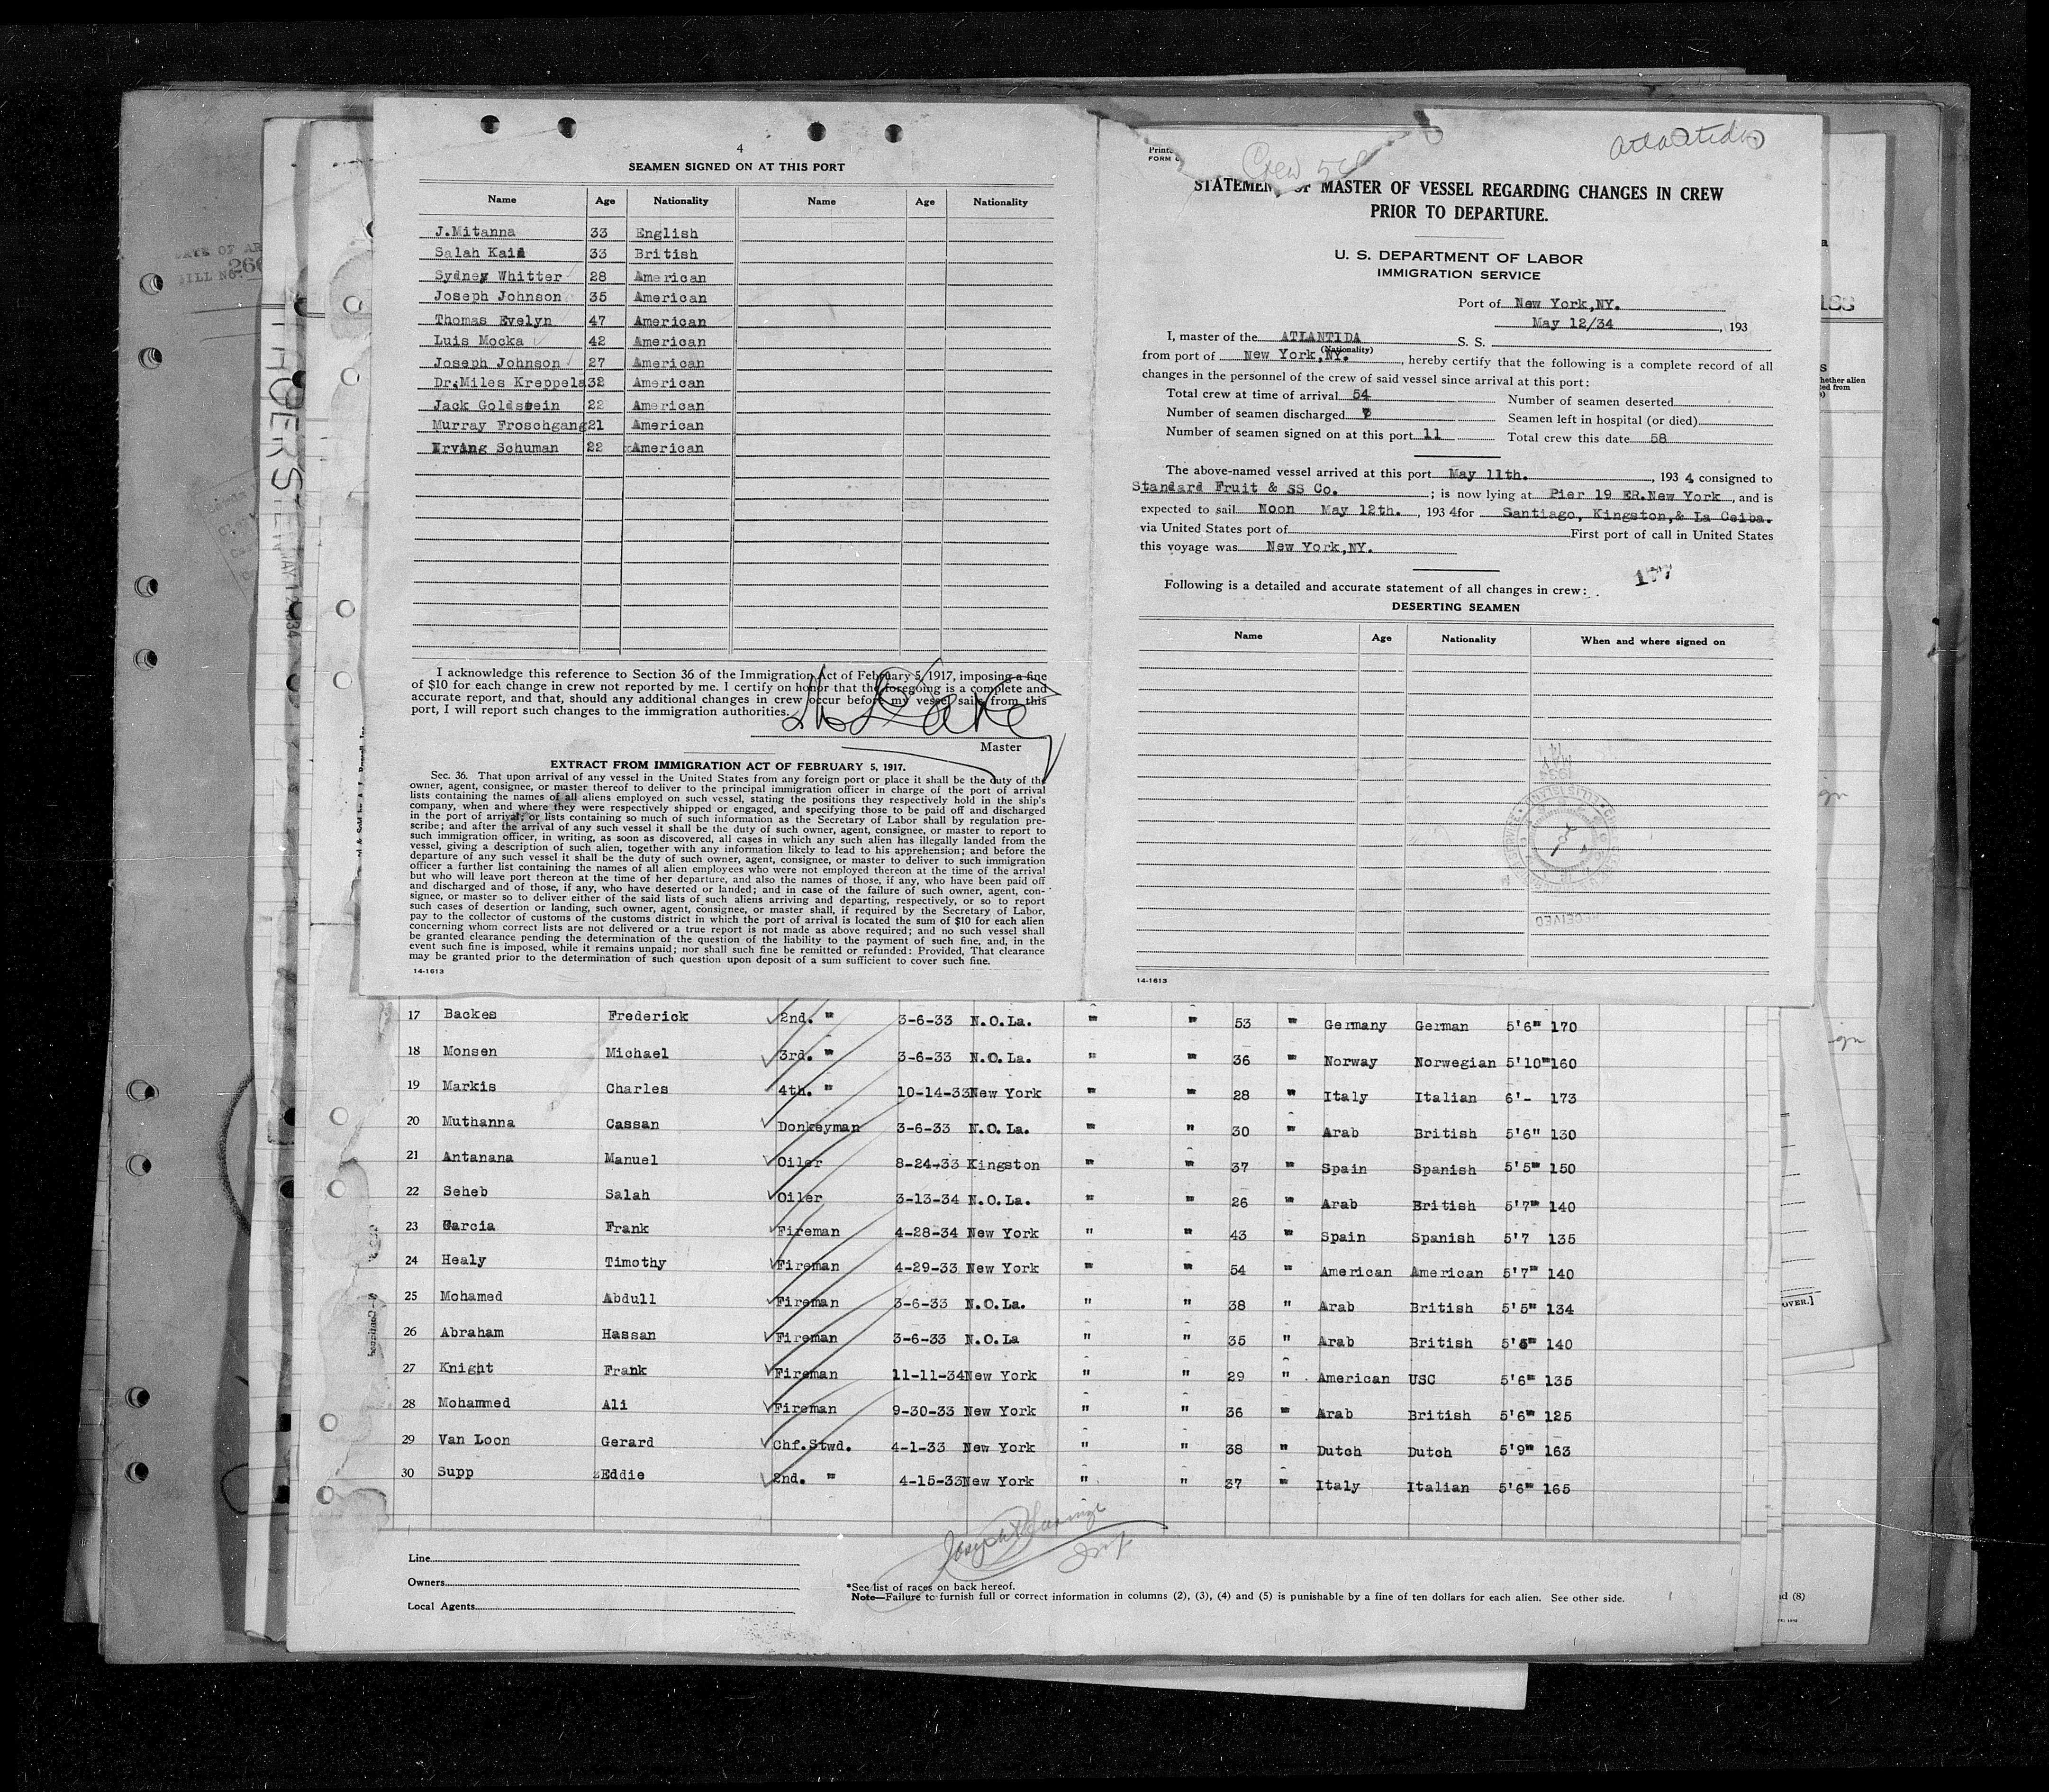 4
SEAMEN SIGNED ON AT THIS PORT
Name Age Nationality Name Age Nationality
J.Mitanna 33 English
Salah Kaid 33 British
Sydney Whitter 28 American
Joseph Johnson 35 American
Thomas Evelyn 47 American
Luis Mocka 42 American
Joseph Johnson 27 American
Dr.Miles Kreppels 32 American
Jack Goldstein 22 American
Murray Froschgang 21 American
Irving Schuman 22 American
I acknowledge this reference to Section 36 of the Immigration Act of February 5, 1917, imposing a fine
of $10 for each change in crew not reported by me. I certify on honor that the foregoing is a complete and
accurate report, and that, should any additional changes in crew occur before my vessel sails from this
port, I will report such changes to the immigration authorities.
Master
EXTRACT FROM IMMIGRATION ACT OF FEBRUARY 5, 1917.
Sec. 36. That upon arrival of any vessel in the United States from any foreign port or place it shall be the duty of the
owner, agent, consignee, or master thereof to deliver to the principal immigration officer in charge of the port of arrival
lists containing the names of all aliens employed on such vessel, stating the positions they respectively hold in the ship's
company, when and where they were respectively shipped or engaged, and specifying those to be paid off and discharged
in the port of arrival; or lists containing so much of such information as the Secretary of Labor shall by regulation pre-
scribe; and after the arrival of any such vessel it shall be the duty of such owner, agent, consignee, or master to report to
such immigration officer, in writing, as soon as discovered, all cases in which any such alien has illegally landed from the
vessel, giving a description of such alien, together with any information likely to lead to his apprehension; and before the
departure of any such vessel it shall be the duty of such owner, agent, consignee, or master to deliver to such immigration
officer a further list containing the names of all alien employees who were not employed thereon at the time of the arrival
but who will leave port thereon at the time of her departure, and also the names of those, if any, who have been paid off
and discharged and of those, if any, who have deserted or landed; and in case of the failure of such owner, agent, con-
signee, or master so to deliver either of the said lists of such aliens arriving and departing, respectively, or so to report
such cases of desertion or landing, such owner, agent, consignee, or master shall, if required by the Secretary of Labor,
pay to the collector of customs of the customs district in which the port of arrival is located the sum of $10 for each alien
concerning whom correct lists are not delivered or a true report is not made as above required; and no such vessel shall
be granted clearance pending the determination of the question of the liability to the payment of such fine, and, in the
event such fine is imposed, while it remains unpaid; nor shall such fine be remitted or refunded: Provided, That clearance
may be granted prior to the determination of such question upon deposit of a sum sufficient to cover such fine.
14-1613
Atlantida
Crew 58
FORM
STATEMENT OF MASTER OF VESSEL REGARDING CHANGES IN CREW
PRIOR TO DEPARTURE.
U. S. DEPARTMENT OF LABOR
IMMIGRATION SERVICE
Port of New York,NY.
May 12/34, 193
I, master of the ATLANTIDA S. S.
(Nationality)
from port of New York,NY., hereby certify that the following is a complete record of all
changes in the personnel of the crew of said vessel since arrival at this port:
Total crew at time of arrival 54 Number of seamen deserted
Number of seamen discharged 7 Seamen left in hospital (or died)
Number of seamen signed on at this port 11 Total crew this date 58
The above-named vessel arrived at this port May 11th., 193 4, consigned to
Standard Fruit & SS Co.; is now lying at Pier 19 ER.New York, and is
expected to sail Noon May 12th., 193 4 for Santiago, Kingston,& La Ceiba.
via United States port of First port of call in United States
this voyage was New York,NY.
177
Following is a detailed and accurate statement of all changes in crew:
DESERTING SEAMEN
Name Age Nationality When and where signed on
RECEIVED
14-1613
17 Backes Frederick 2nd. " 3-6-33 N.O.La. " " 53 " Germany German 5'6" 170
18 Monsen Michael 3rd. " 3-6-33 N.O.La. " " 36 " Norway Norwegian 5'10" 160
19 Markis Charles 4th. " 10-14-33 New York " " 28 " Italy Italian 6'- 173
20 Muthanna Cassan Donkeyman 3-6-33 N.O.La. " " 30 " Arab British 5'6" 130
21 Antanana Manuel Oiler 8-24-33 Kingston " " 37 " Spain Spanish 5'5" 150
22 Seheb Salah Oiler 3-13-34 N.O.La. " " 26 " Arab British 5'7" 140
23 Garcia Frank Fireman 4-28-34 New York " " 43 " Spain Spanish 5'7 135
24 Healy Timothy Fireman 4-29-33 New York " " 54 " American American 5'7" 140
25 Mohamed Abdull Fireman 3-6-33 N.O.La. " " 38 " Arab British 5'5" 134
26 Abraham Hassan Fireman 3-6-33 N.O.La " " 35 " Arab British 5'6" 140
27 Knight Frank Fireman 11-11-34 New York " " 29 " American USC 5'6" 135
28 Mohammed Ali Fireman 9-30-33 New York " " 36 " Arab British 5'6" 125
29 Van Loon Gerard Chf.Stwd. 4-1-33 New York " " 38 " Dutch Dutch 5'9" 163
30 Supp Eddie 2nd. " 4-15-33 New York " " 37 " Italy Italian 5'6" 165
Line
Owners
Local Agents
*See list of races on back hereof.
Note—Failure to furnish full or correct information in columns (2), (3), (4) and (5) is punishable by a fine of ten dollars for each alien. See other side.